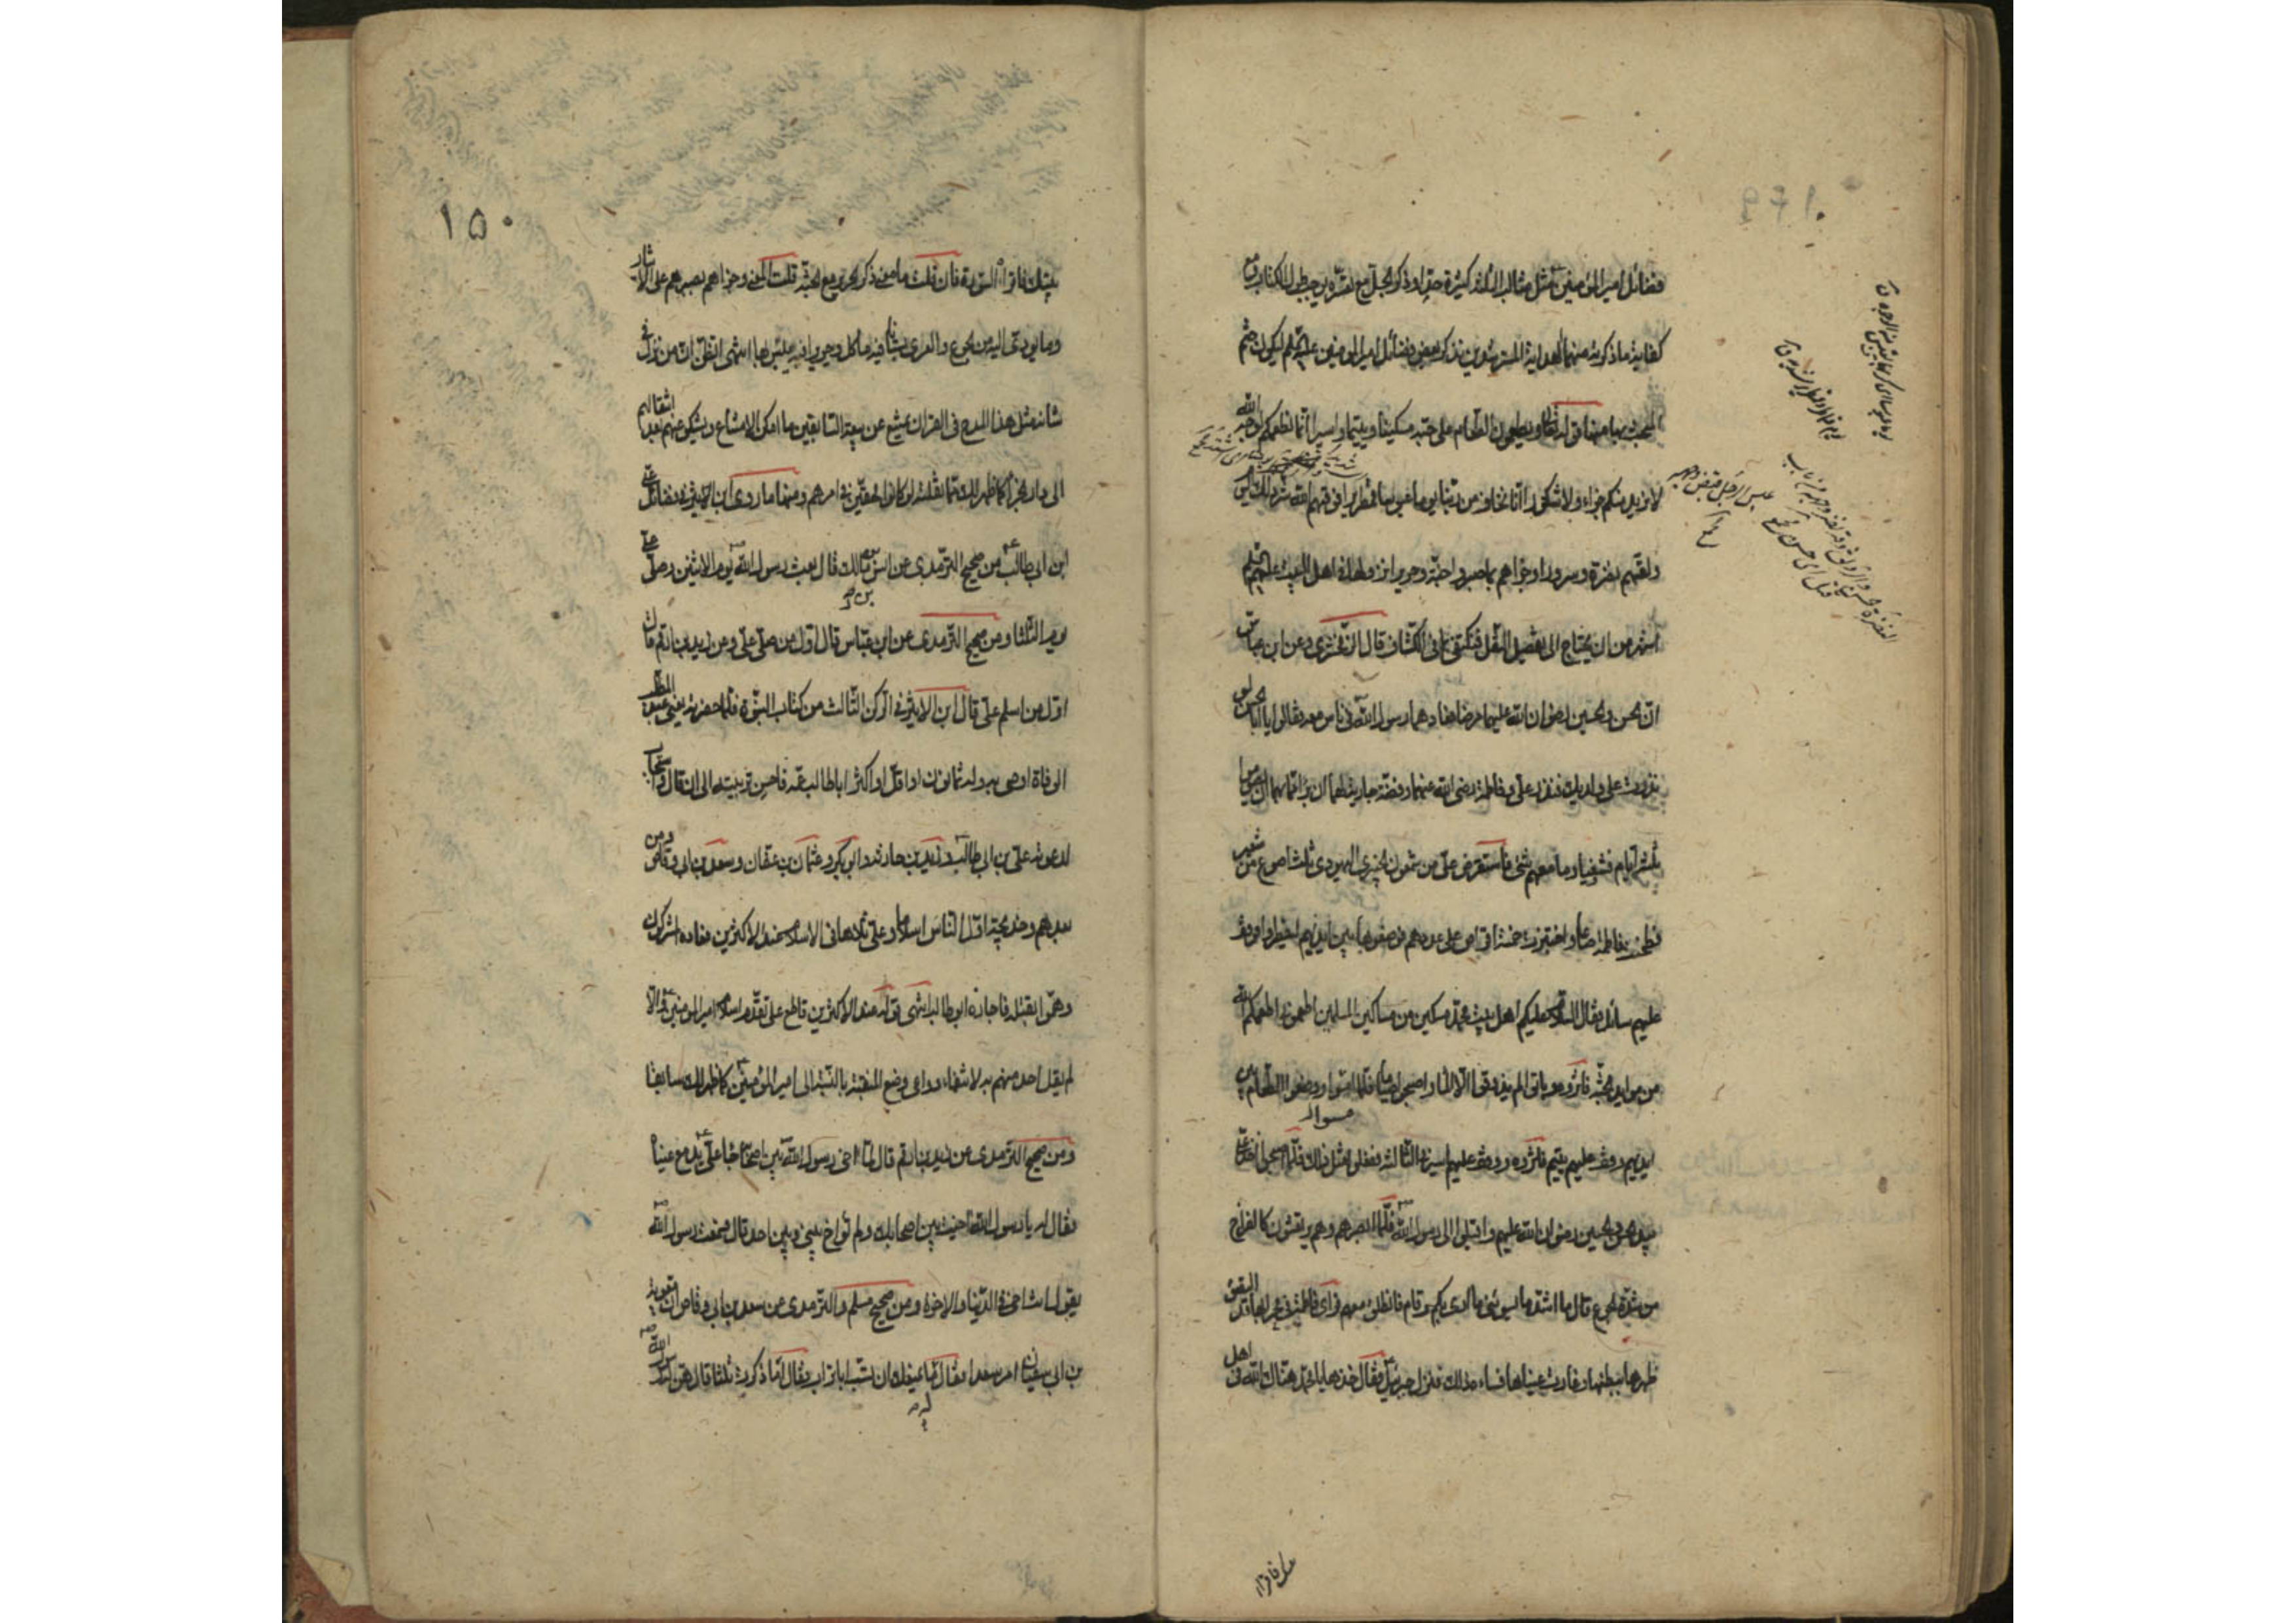 فضائل امير المؤمنين مثل مثالب الثلثة كثيرة جدا وذكر الجل مع تعسره يوجب طول الكتاب ومع
كفاية ما ذكرته منهما لهداية المسترشدين نذكر بعض فضائل امير المؤمنين عليه السلم ليكون ختم
المبحث بها منها قوله تعالى ويطعمون الطعام على حبه مسكينا ويتيما واسيرا انما نطعمكم لوجه الله
لا نريد منكم جزاء ولا شكورا انا نخاف من ربنا يوما عبوسا قمطريرا فوقيهم الله شر ذلك اليوم
ولقيهم نضرة وسرورا وجزاهم بما صبروا جنة وحريرا نزولها في اهل البيت عليهم السلم
اشهر من ان يحتاج الى تفصيل النقل فنكتفي بما في الكشاف قال الزمخشري وعن ابن عباس
ان الحسن والحسين رضوان الله عليهما مرضا فعادهما رسول الله في ناس معه فقالوا يا ابا الحسن لو
نذرت على ولديك فنذر علي وفاطمة رضى الله عنهما وفضة جارية لهما ان برآ مما بهما ان يصوموا
ثلثة ايام فشفيا وما معهم شئ فاستقرض علي من شمعون الخيبري اليهودي ثلث اصوع من شعير
فطحنت فاطمة صاعا واختبزت خمسة اقراص على عددهم فوضعوها بين ايديهم ليفطروا فوقف
عليهم سائل فقال السلام عليكم اهل بيت محمد مسكين من مساكين المسلمين اطعموني اطعمكم الله
من موايد الجنة فآثروه وباتوا لم يذوقوا الا الماء واصبحوا صياما فلما امسوا ووضعوا الطعام بين
ايديهم وقف عليهم يتيم فآثروه ووقف عليهم اسير في الثالثة ففعلوا مثل ذلك فلما اصبحوا اخذ علي
بيد الحسن والحسين رضوان الله عليهم واقبلوا الى رسول الله فلما ابصرهم وهم يرتعشون كالفراخ
من شدة الجوع قال ما اشد ما يسوئني ما ارى بكم وقام فانطلق معهم فرأى فاطمة في محرابها قد التصق
ظهرها ببطنها وغارت عيناها فساءه ذلك فنزل جبرئيل وقال خذها يا محمد هنّاك الله في اهل
١٥٠
بيتك فاقرأه السورة فان قلت ما معنى ذكر الحرير مع الجنة قلت المعنى وجزاهم بصبرهم على الايثار
وما يؤدي اليه من الجوع والعرى بستانا فيه مأكل وحريرا فيه ملبس بها انتهى اتظن ان من نزل في
شانه مثل هذا المدح في القرآن يشيع عن بيعة السابقين ما امكن الامتناع ويشكو عنهم بعد انتقالهم
الى دار الجزا كما ظهر لك مما نقلته لو كانوا محقين في امرهم ومنها ما روى ابن الاثير في فضائل علي
ابن ابي طالب من صحيح الترمدي عن انس بن مالك قال بعث رسول الله يوم الاثنين وصلى علي
يوم الثلثا ومن صحيح الترمدي عن ابن عباس قال اول من صلى علي ومن زيد بن ارقم قال
اول من اسلم علي قال ابن الاثير في الركن الثالث من كتاب النبوة فلما حضرته يعني عبد المطلب
الوفاة اوصى به وله ثمانون او اقل او اكثر ابا طالب عمه فاحسن تربيته الى ان قال واستجاب
لدعوته علي بن ابي طالب وزيد بن حارثه وابو بكر وعثمان بن عفان وسعد بن ابي وقاص ومن
بعدهم وخديجة اول الناس اسلاما وعلي ثلاها في الاسلام عند الاكثرين معاده اشركوك
وهموا بقتله فاجاره ابو طالب انتهى قوله عند الاكثرين قاطع على تقدم اسلام امير المؤمنين والا
لم يقل احد منهم به لانتفاء دواعي وضع المنقبة بالنسبة الى امير المؤمنين كما ظهر لك سابقا
ومن صحيح الترمدي عن زيد بن ارقم قال لما آخى رسول الله بين اصحابه جاء علي تدمع عيناه
فقال له يا رسول الله آخيت بين اصحابك ولم تؤاخ بيني وبين احد قال فسمعت رسول الله
يقول انت اخي في الدنيا والاخرة ومن صحيح مسلم والترمدي عن سعد بن ابي وقاص ان معوية
بن ابي سفيان امر سعدا فقال ما يمنعك ان تسب ابا تراب فقال اما ذكرت ثلثا قال هن رسول الله